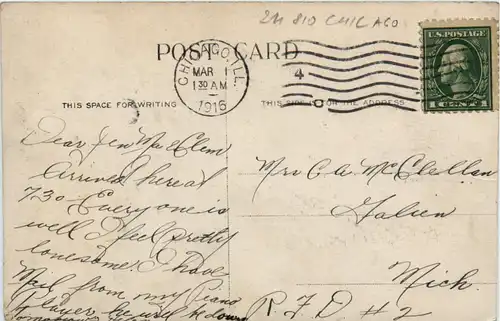 2M 810 CHICAGO
POST CARD
U.S. POSTAGE
CHICAGO, ILL.
MAR 1
1 30 AM
1916
4
1 CENT 1
THIS SPACE FOR WRITING
THIS SIDE IS FOR THE ADDRESS
Dear Jen Mac & Clem
Arrived here at
7.30 - Everyone is
well I feel pretty
lonesome. I have
Mail from my Piano
Player, he will be down
Mrs C.A. McClellan
Galien
Mich.
R.F.D #2